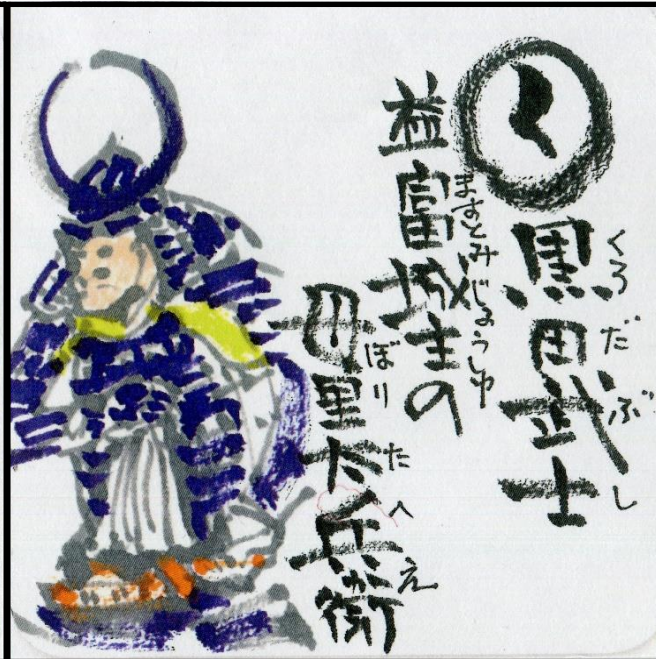 く
黒田武士
くろだぶし
益富城主の
ますとみじょうしゅ
母里太兵衛
ぼりたへえ